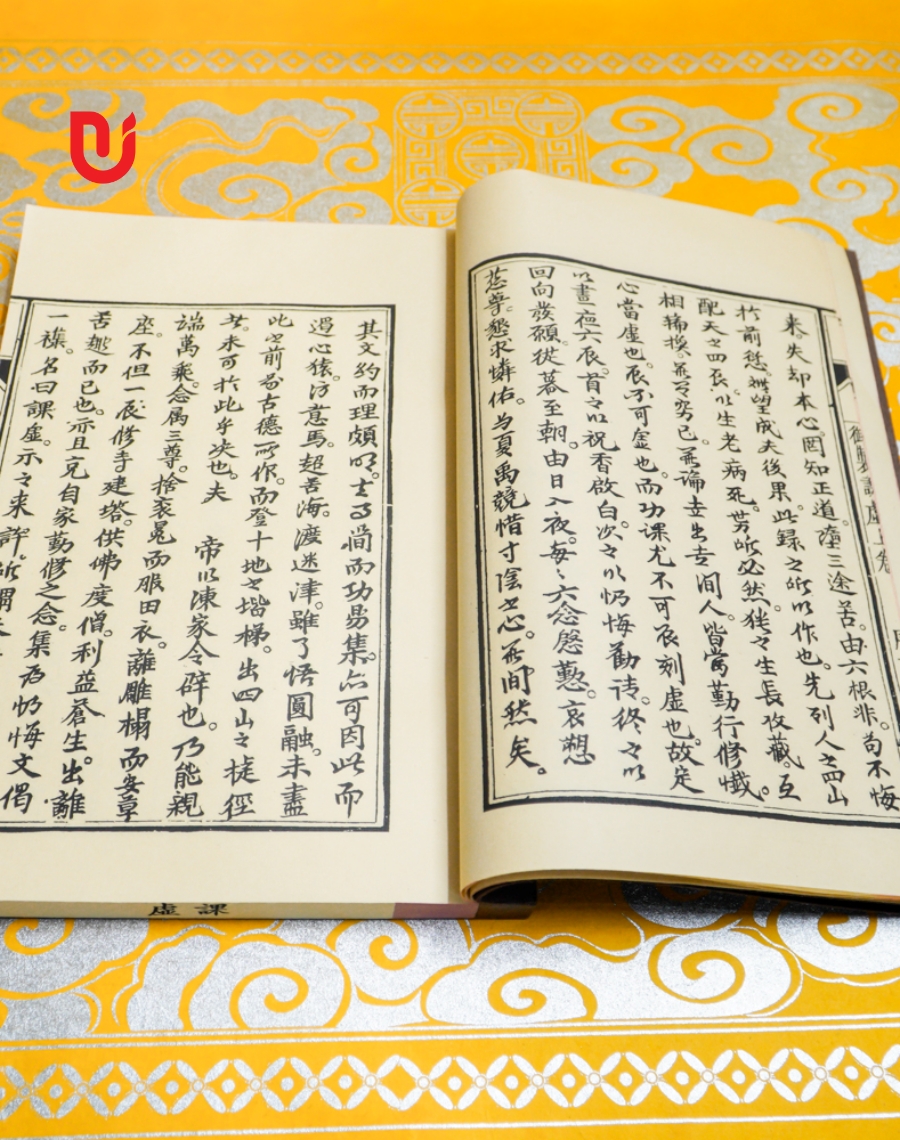 来。失却本心罔知正道。墮三途苦。由六根非。苟不悔
於前愆。難望成夫後果。此録之所以作也。先列人之四山
配天之四辰。以生老病死。世所必然。猶々生長收藏。互
相輪換。無有窮已。無論在出世間人。皆當勤行修懺。
心當虚也。辰不可虚也。而功課尤不可辰刻虚也。故定
以晝夜六辰。首之以祝香啟白。次之以忏悔勸请。终之以
回向發願。從暮至朝。由日入夜。每々六念慇懃。哀愬
慈尊。懇求憐佑。与夏禹競惜寸陰之心。無间然矣。
御製課虚上卷
其文約而理頗明。士而功易集。亦可因此而
遏心猿。防意馬。超苦海。渡迷津。雖了悟圓融。未盡
此之前古德所作。而登十地之堦梯。出四山之捷徑
者。未可於此乎决也。夫 帝以陳家令辟也。乃能親
端萬乘。念属三尊。捨衮冕而服田衣。離雕榻而安草
座。不但一辰修寺建塔。供佛度僧。利益蒼生。出離
苦趣而已也。亦且克自家勤修之念。集為忏悔文偈
一襍。名曰課虚。示之来許。所謂
課虚